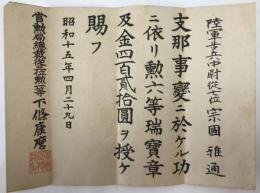 陸軍歩兵中尉從七位宗國雅通
支那事變ニ於ケル功
ニ依リ勲六等瑞寶章
及金四百貳拾圓ヲ授ケ
賜フ
昭和十五年四月二十九日
賞勲局總裁從三位勲二等下條康麿